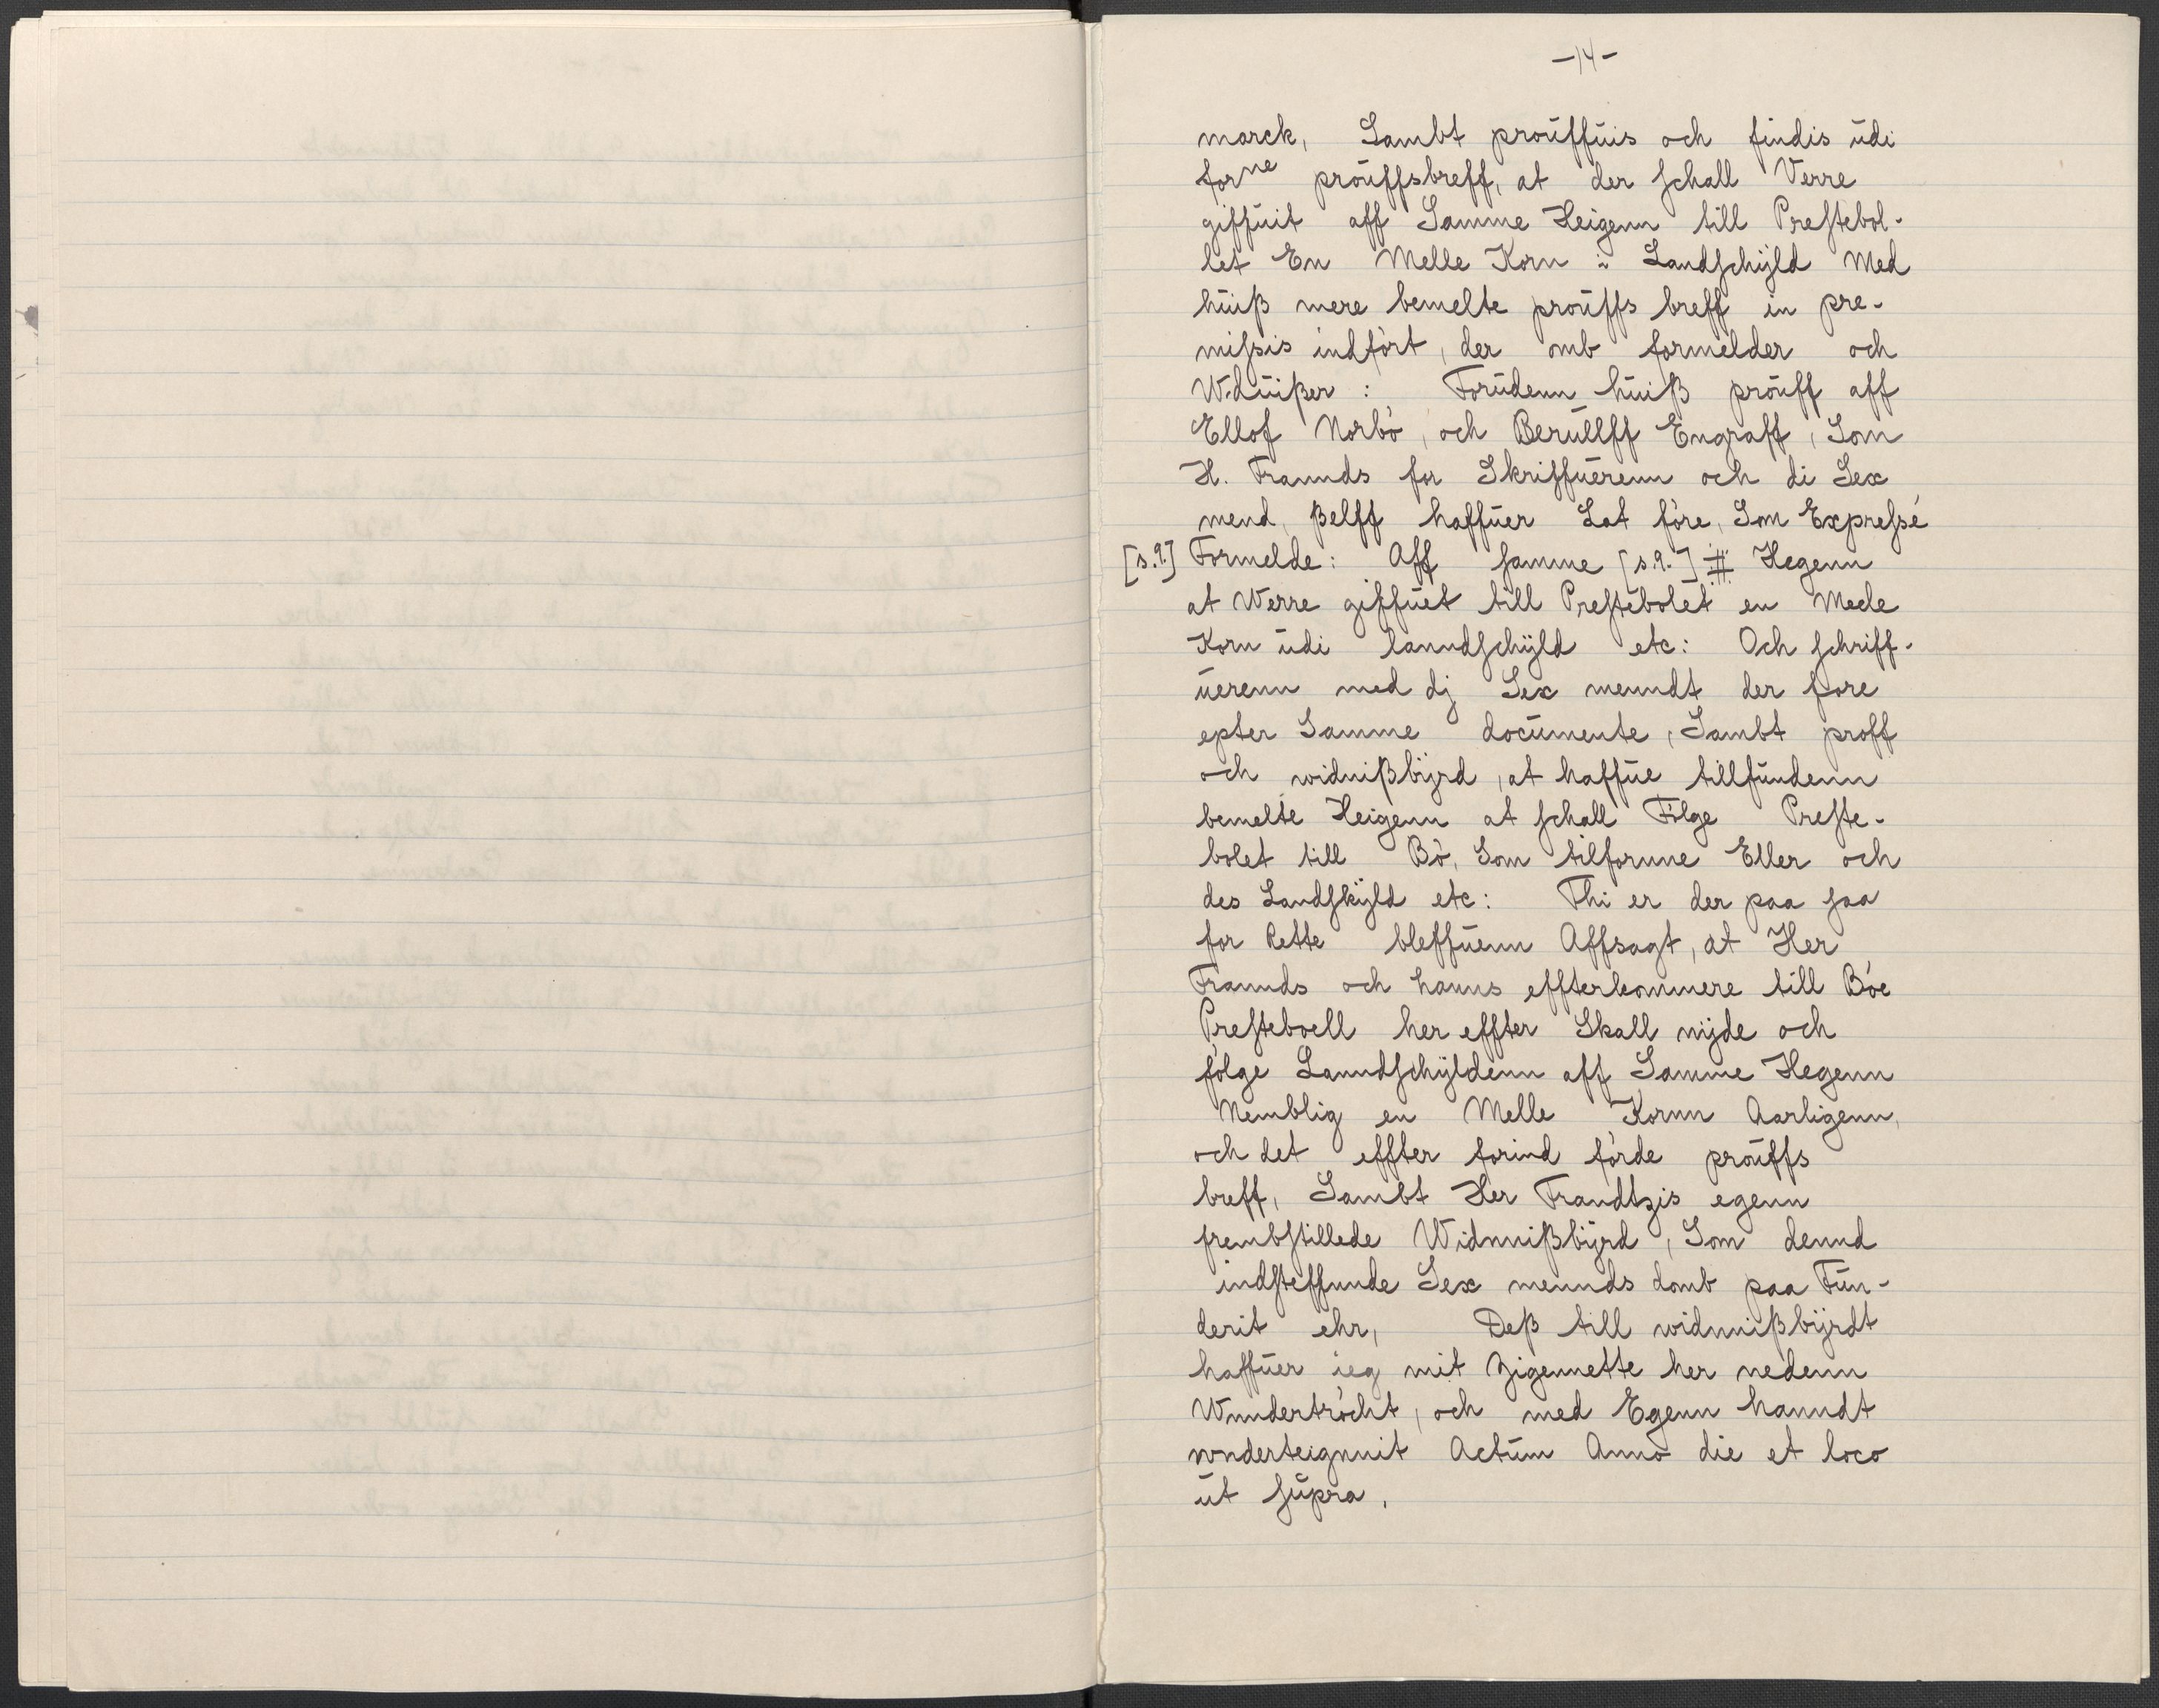 -14-
marck, Sambt proŭffŭis och findis ŭdi
forne proŭffsbreff, at der schall Verre
giffŭit aff Samme Heigenn till Prestebol-
let En Melle Korn i Landschÿld Med
hŭiß mere bemelte proŭffs breff in pre-
missis indført, der omb formelder och
Wdŭißer : Forŭdenn hŭiß proŭff aff
Ellof Norbø, och Berŭllff Engraff, Som
H. Frannds for Skriffŭerenn och di Sex
mend, ßelff haffŭer Lat føre, Som Expressé
[s.9.] Formelde: Aff samme [s.9.] # Hegenn
at Werre giffŭet till Prestebolet en Mele
Korn ŭdi lanndschÿld etc: Och schriff-
ŭerenn med dj Sex menndt der fore
epter Samme docŭmente, Sambt proff
och widnißbÿrd, at haffŭe tillfŭndenn
bemelte Heigenn at schall Følge Preste-
bolet till Bø, Som tilfornne Eller och
des Landskÿld etc: Thi er der paa saa
for Rette bleffŭenn Affsagt, at Her
Frannds och hanns effterkommere till Bøe
Presteboell her effter Skall nÿde och
følge Lanndschÿldenn aff Samme Hegenn
Nemblig en Melle Kornn Aarligenn,
och det effter forind førde proŭffs
breff, Sambt Her Frandtzis egenn
frembstillede Widnnißbÿrd, Som dennd
indsteffnnde Sex mennds domb paa Fŭn-
derit ehr, Deß till widnnißbÿrdt
haffŭer ieg mit Zigennette her nedenn
Wnndertrøcht, och med Egenn hanndt
wnderteignnit Actŭm Anno die et loco
ŭt sŭpra.